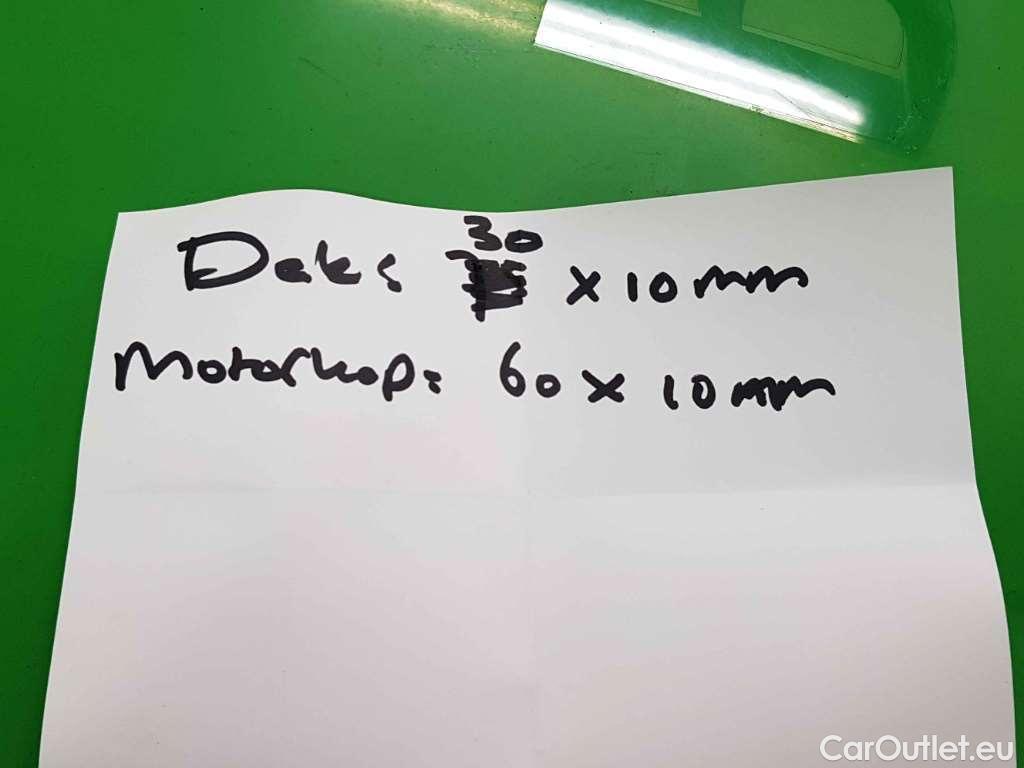 Dak: 30 x 10 mm
Motorkap: 60 x 10 mm
CarOutlet.eu